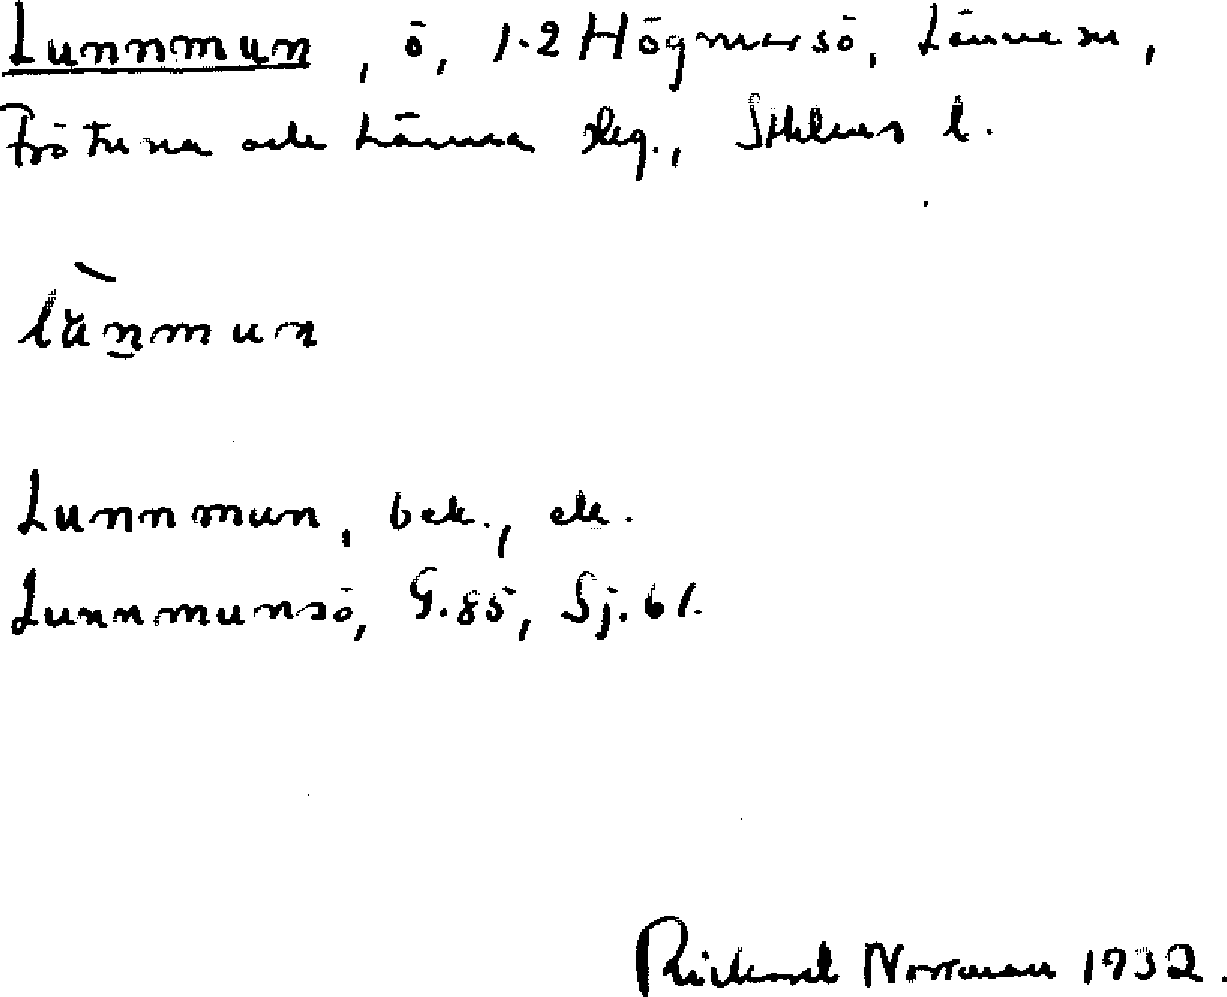 Lunnmun, ö, 1-2 Högmarsö, Länna sn,
Frötuna och Länna skg., Sthlms l.
länmun
Lunnmun, bek., ek.
Lunnmunsö, G.85, Sj.61.
Rickard Norrman 1932.